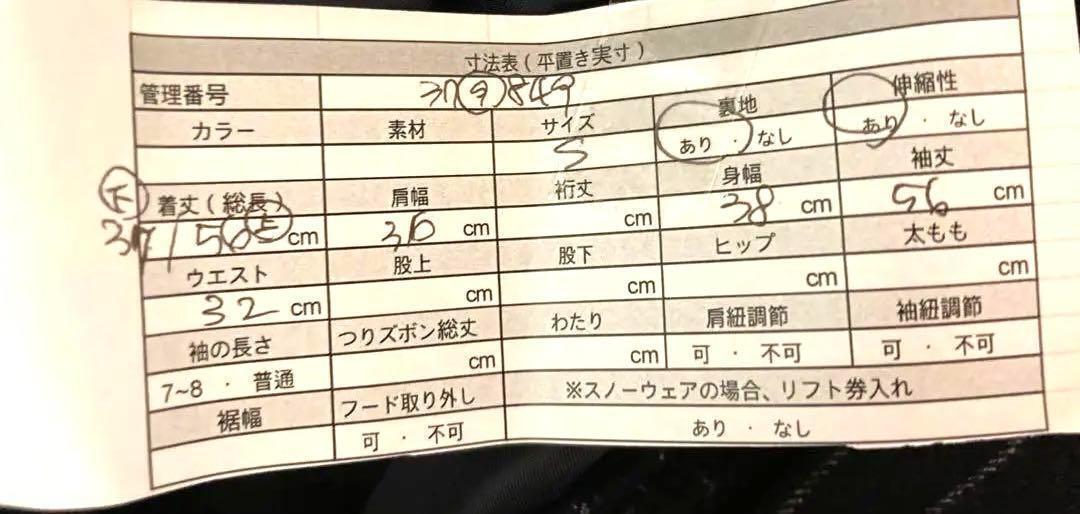 寸法表（平置き実寸）
管理番号 37(9)849
カラー 素材 サイズ 裏地 伸縮性
S あり ・ なし あり ・ なし
下 着丈（総長） 肩幅 裄丈 身幅 袖丈
37/56上 cm 36 cm cm 38 cm 56 cm
ウエスト 股上 股下 ヒップ 太もも
32 cm cm cm cm cm
袖の長さ つりズボン総丈 わたり 肩紐調節 袖紐調節
7~8 ・ 普通 cm cm 可 ・ 不可 可 ・ 不可
裾幅 フード取り外し ※スノーウェアの場合、リフト券入れ
可 ・ 不可 あり ・ なし